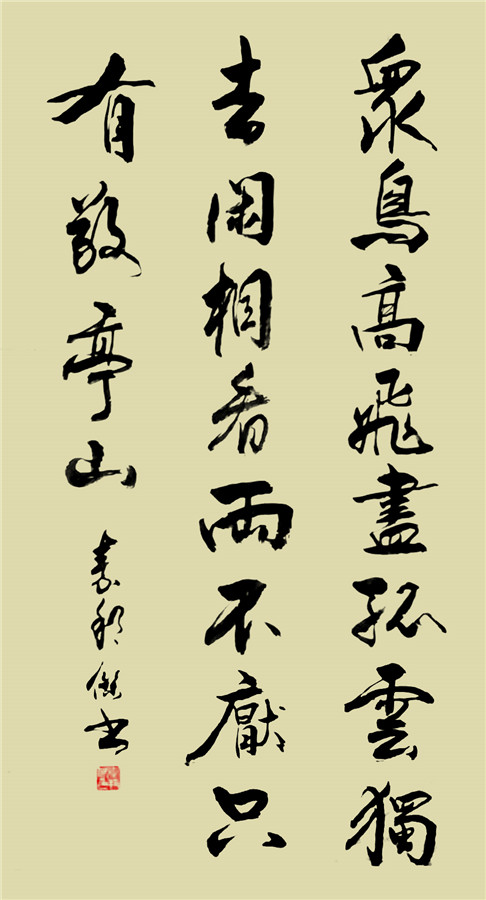 衆鳥高飛盡孤雲獨
去閑相看兩不厭只
有敬亭山
袁 书